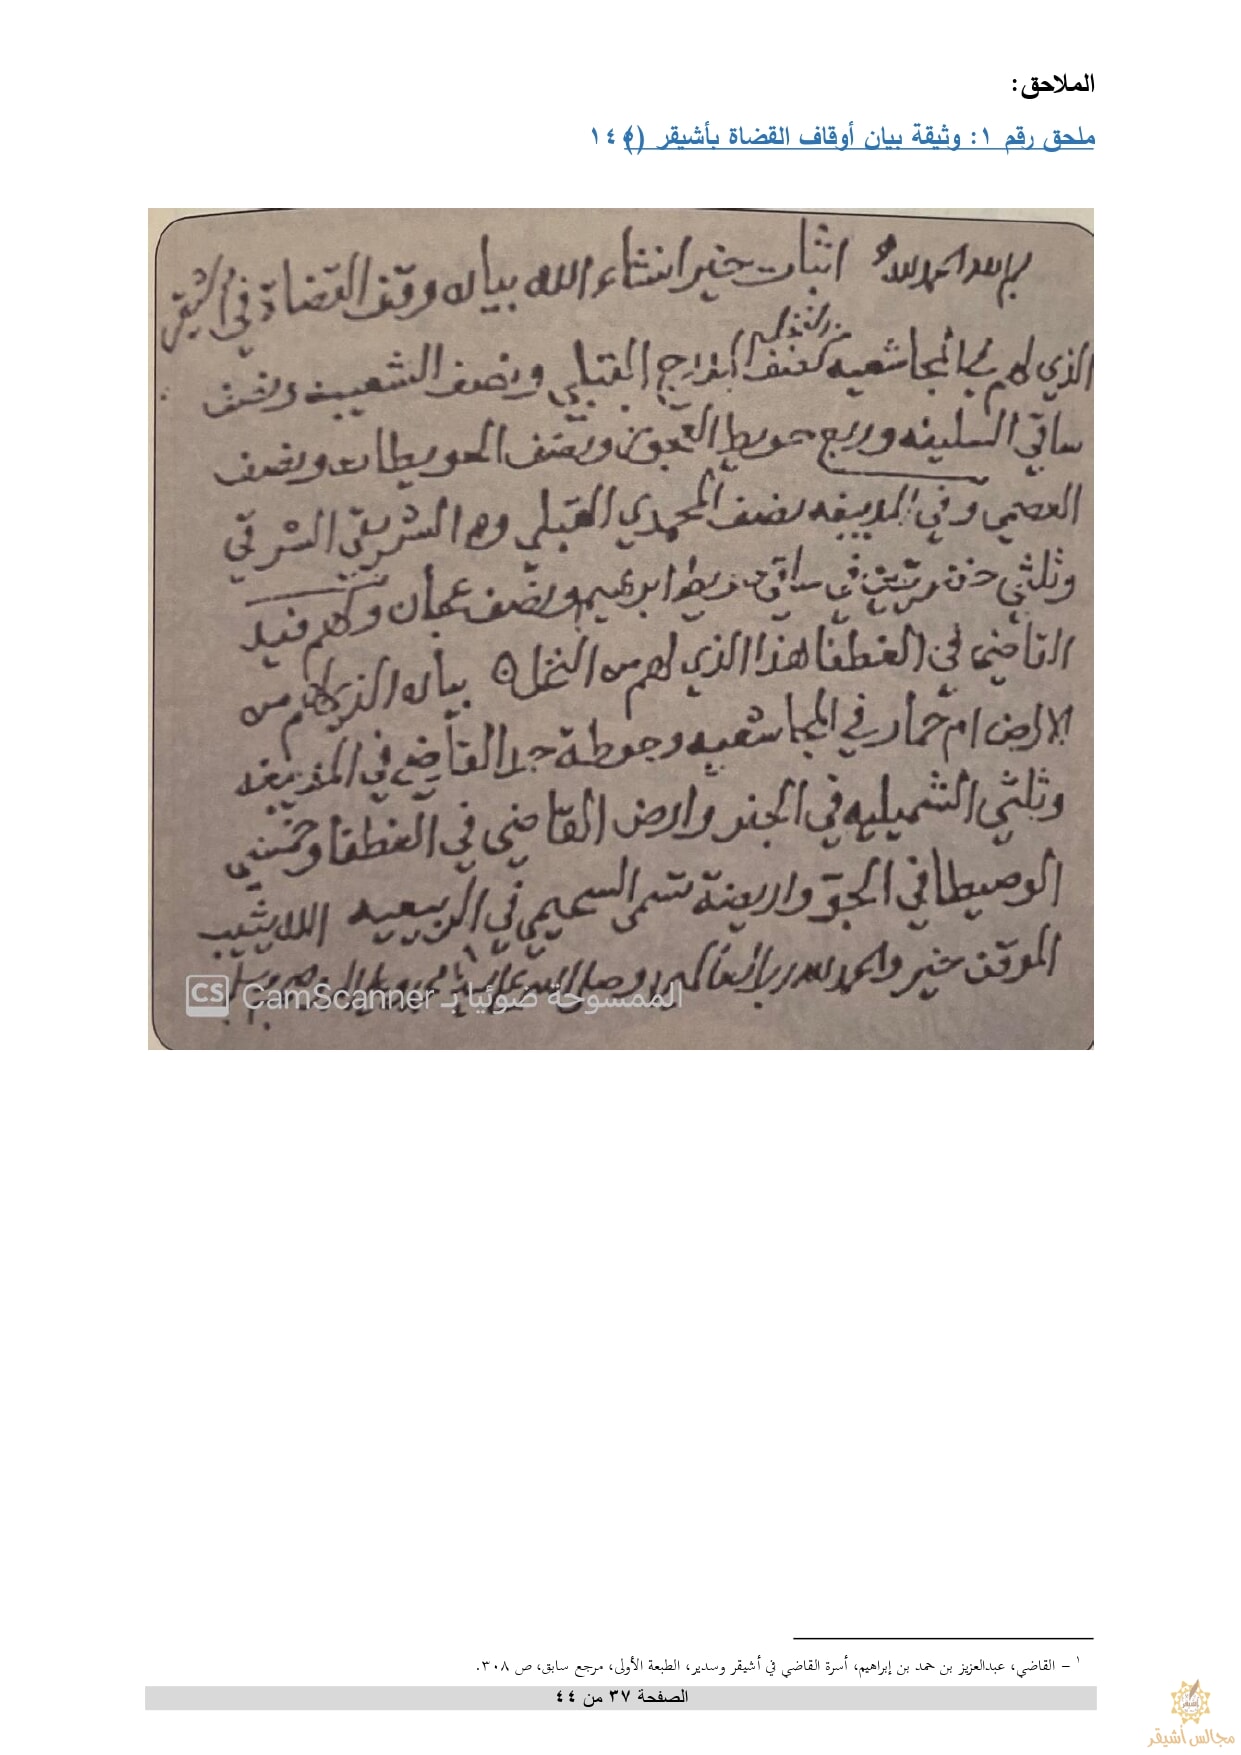 الملاحق:
ملحق رقم ١: وثيقة بيان أوقاف القضاة بأشيقر (١٤٤)
بسم الله الحمد لله اثبات خير انشاء الله بيان وقف القضاة في اشيقر
الذي لهم في المجاشعيه من النخل نصف القبلي ونصف الشعيب ونصف
ساقي السليفه وربع حويط العجوز ونصف الحويطات ونصف
العصيمي وفي المديبغه نصف المحمدي القبلي وهو الشريقي الشرقي
وثلثي في ساقي حويط ابرهيم ونصف عجلان وكلهم فيد
القاضي في الغطفا هذا الذي لهم من النخل بيان الذي لهم من
الارض ام حمار في المجاشعيه وحوطة القاضي في المديبغه
وثلثي الشميليه في الجنز وارض القاضي في الغطفا وخمسي
الوصيطا في الجو واريضة تسمى السحيمي في الربيعيه الله يثيب
الموقف خير والحمد لله رب العالمين وصلى الله على محمد وعلى اله وصحبه وسلم
CS CamScanner الممسوحة ضوئيا بـ
١ – القاضي، عبدالعزيز بن حمد بن إبراهيم، أسرة القاضي في أشيقر وسدير، الطبعة الأولى، مرجع سابق، ص ٣٠٨.
الصفحة ٣٧ من ٤٤
مجالس أشيقر